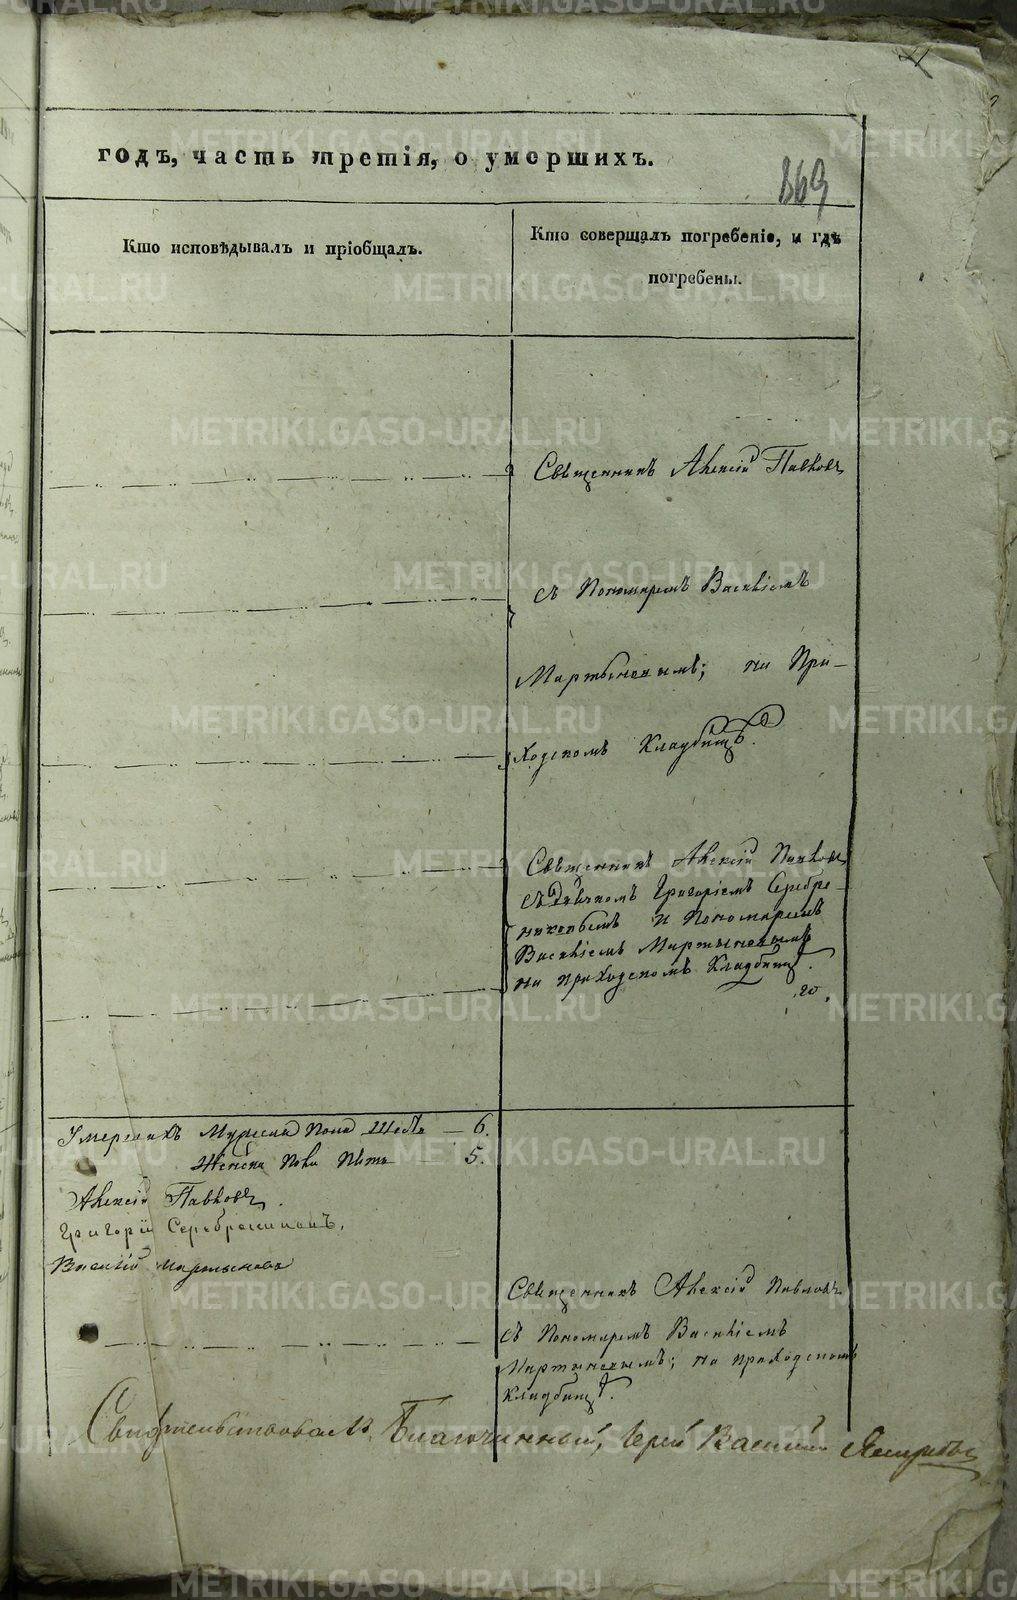 годъ, часть третія, о умершихъ.
869
Кто исповѣдывалъ и пріобщалъ.
Кто совершалъ погребеніе, и гдѣ
погребены.
Священникъ Алексій Павловъ
съ Пономаремъ Василіемъ
Мартыновымъ; на При-
ходскомъ Кладбищѣ.
Священникъ Алексій Павловъ
съ Дьячкомъ Григоріемъ Серебре-
никовымъ и Пономаремъ
Василіемъ Мартыновымъ
на приходскомъ Кладбищѣ.
Умершихъ Мужеска пола Шесть — 6.
Женска пола Пять — 5.
Алексій Павловъ.
Григорій Серебрениковъ.
Василій Мартыновъ
Священникъ Алексій Павловъ
съ Пономаремъ Василіемъ
Мартыновымъ; на приходскомъ
кладбищѣ.
Свидѣтельствовалъ Благочинный, Іерей Василій
METRIKI.GASO-URAL.RU